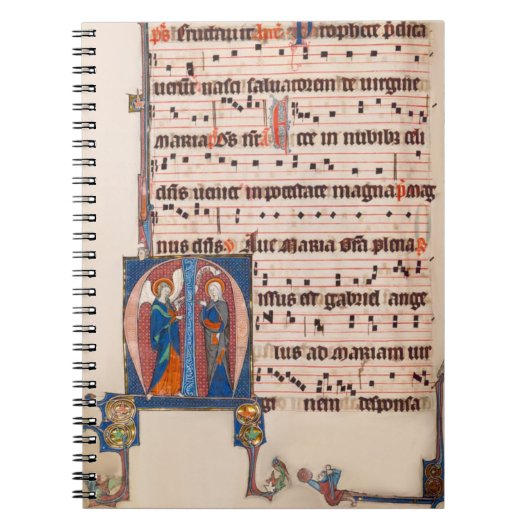 fructuū it Prophete p̄dica
uerūt nasci saluatorem de uirgine
maria p̄s Ecce in nubibȝ celi
dn̄s ueniet in potestate magna p̄ mag
nus dn̄s ꝟ Aue maria gr̄a plena ꝶ
issus est gabriel ange
lus ad mariam uir
ginem desponsa